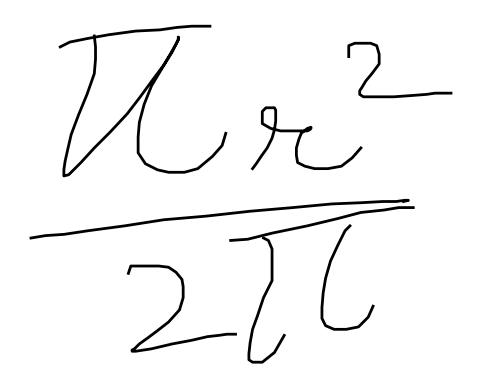 πr²
2π